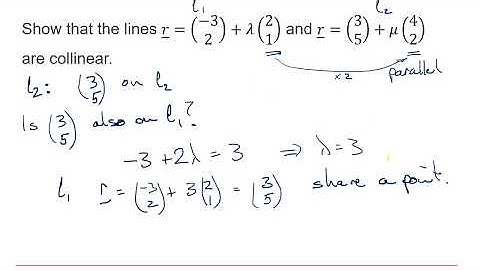 l₁ l₂
Show that the lines r = (−3 2) + λ(2 1) and r = (3 5) + μ(4 2)
are collinear.
×2 parallel
l₂: (3 5) on l₂
Is (3 5) also on l₁?
−3 + 2λ = 3 ⇒ λ = 3
l₁ r = (−3 2) + 3(2 1) = (3 5) share a point.